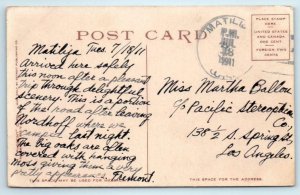 POST CARD
MATILI
P.M.
1911
PLACE STAMP HERE
UNITED STATES AND
ONE CENT
FOREIGN
Matilija, Tues. 7/18/11
Arrived here safely
this noon after a pleasant
trip through delightful
scenery. This is a portion
of the road after leaving
Nordhoff where we
camped last night.
The big oaks are often
covered with hanging
moss giving them a very
pretty appearance. Fremont.
Miss Martha Ballou
c/o Pacific Stereoptica
Co.,
138½ S. Spring St.
Los Angeles.
THIS SPACE MAY BE USED FOR